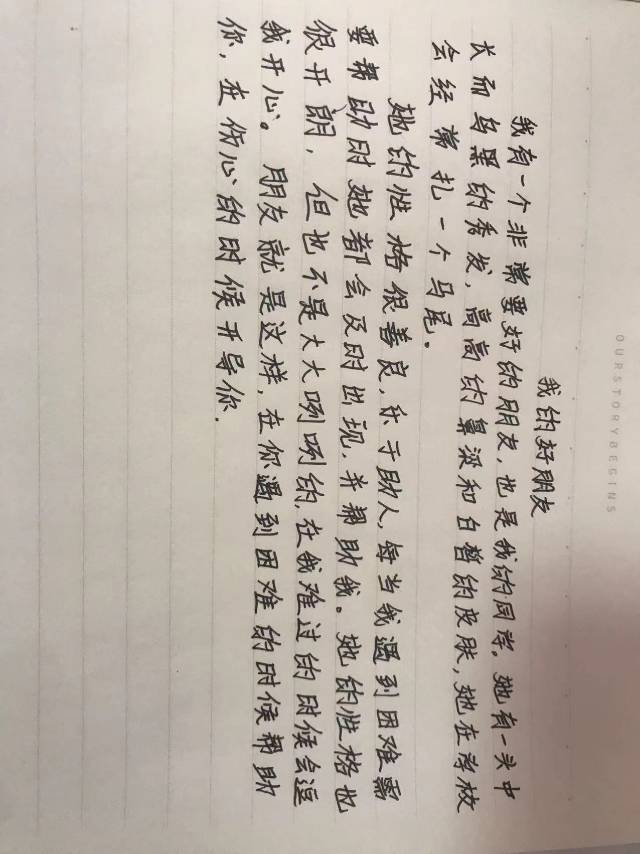 OURSTORYBEGINS
我的好朋友
我有一个非常要好的朋友,也是我的同学。她有一头中
长而乌黑的秀发,高高的鼻梁和白皙的皮肤,她在学校
会经常扎一个马尾。
她的性格很善良,乐于助人,每当我遇到困难需
要帮助时她都会及时出现,并帮助我。她的性格也
很开朗,但也不是大大咧咧的,在我难过的时候会逗
我开心。朋友就是这样,在你遇到困难的时候帮助
你,在伤心的时候开导你.